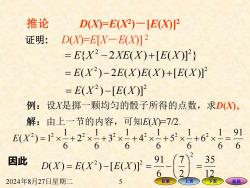 推论 D(X)=E(X²)－[E(X)]²
证明: D(X)=E[X－E(X)] ²
= E{X² − 2XE(X)+[E(X)]²}
= E(X²) − 2E(X)E(X)+[E(X)]²
= E(X²) − [E(X)]²
例：设X是掷一颗均匀的骰子所得的点数，求D(X)。
解：由上一节的内容，可知E(X)=7/2.
E(X²) = 1² × 1/6 + 2² × 1/6 + 3² × 1/6 + 4² × 1/6 + 5² × 1/6 + 6² × 1/6 = 91/6
因此 D(X) = E(X²) − [E(X)]² = 91/6 − (7/2)² = 35/12
2024年8月27日星期二 5